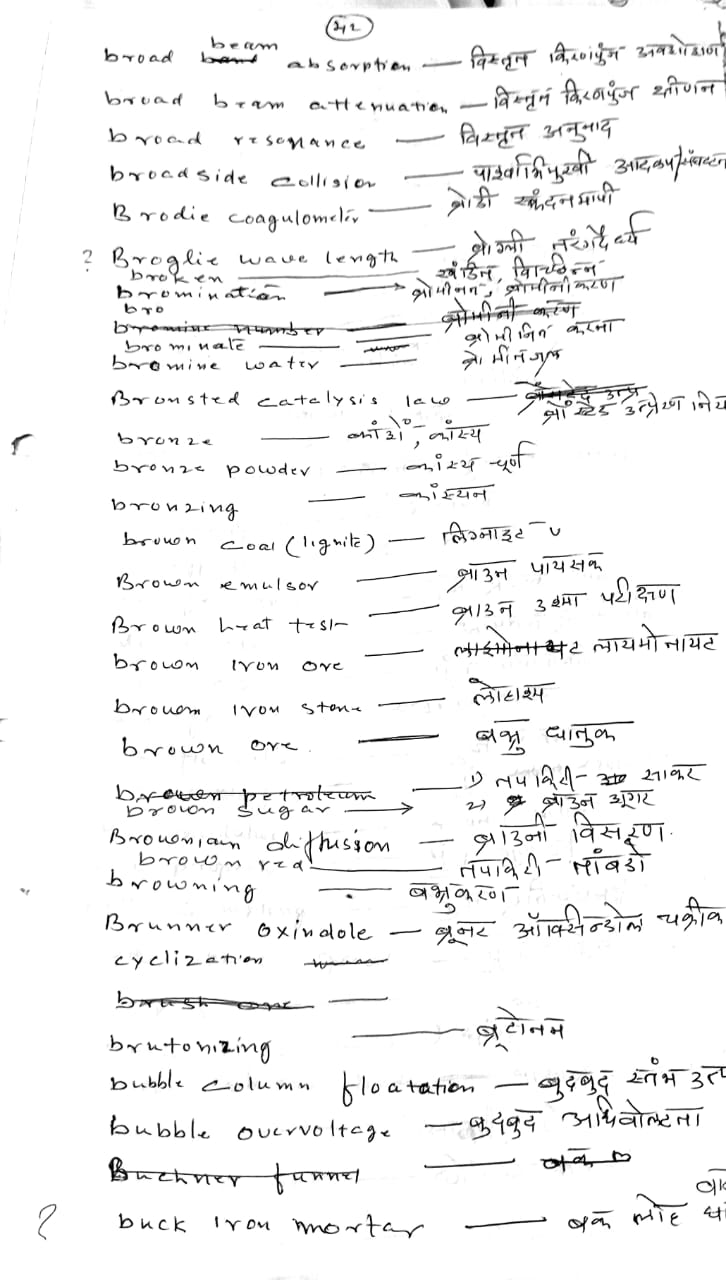 ५२
broad beam absorption — विस्तृत किरणपुंज अवशोषण
broad beam attenuation — विस्तृत किरणपुंज क्षीणन
broad resonance — विस्तृत अनुनाद
broadside collision — पार्श्वाभिमुखी
Brodie coagulometer — ब्रोडी स्कंदनमापी
? Broglie wave length — ब्रोग्ली तरंगदैर्ध्य
broken — खंडित, विच्छिन्न
bromination → ब्रोमीनन, ब्रोमीनीकरण
bro
bromine number — ब्रोमीनी करण
brominate — ब्रोमीनित करना
bromine water — ब्रोमीनजल
Bronsted catalysis law — ब्रॉन्स्टेड उत्प्रेरण निय
bronze — कांसे, कांस्य
bronze powder — कांस्य चूर्ण
bronzing — कांस्यन
brown coal (lignite) — लिग्नाइट
Brown emulsor — ब्राउन पायसक
Brown heat test — ब्राउन उश्मा परीक्षण
brown iron ore — लायमोनायट
brown iron stone — लोहाश्म
brown ore — बभ्रु धातुक
brown petroleum — १) तपकिरी साकर
brown sugar → २) ब्राउन शुगर
Brownian diffusion — ब्राउनी विसरण.
brown red — तपकिरी - तांबडा
browning — बभ्रुकरण
Brunner oxindole — ब्रूनर ऑक्सीन्डोल चक्रीक
cyclization
brush ore —
brutonizing — ब्रूटोनन
bubble column floatation — बुदबुद स्तंभ उत्प
bubble overvoltage — बुदबुद अधिवोल्टता
Buchner funnel —
? buck iron mortar — बक लोह